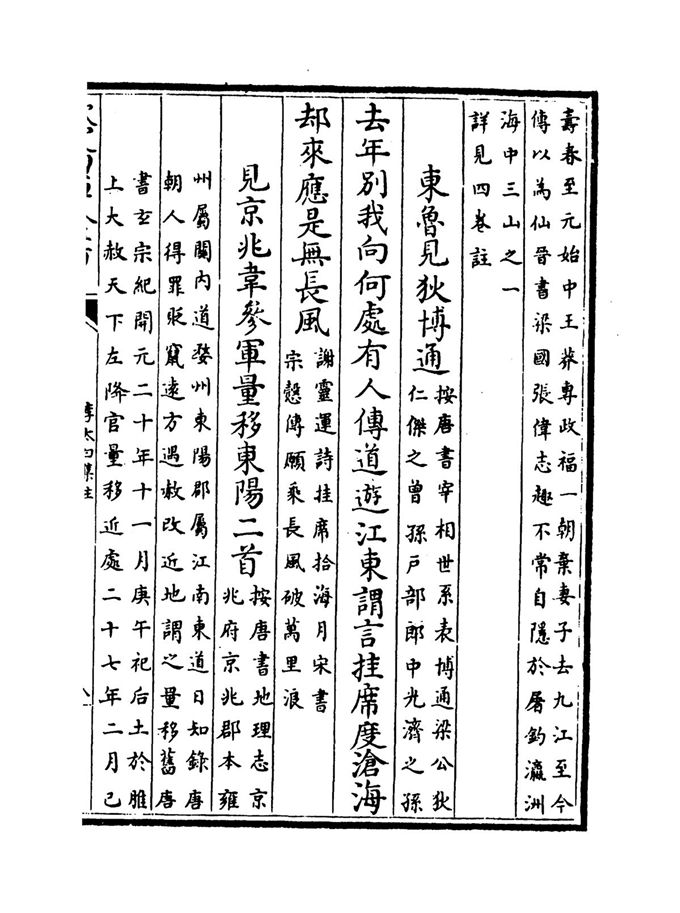 壽春至元始中王莽專政福一朝棄妻子去九江至今
傳以為仙晉書梁國張偉志趣不常自隱於屠釣瀛洲
海中三山之一
詳見四卷註
東魯見狄博通
按唐書宰相世系表博通梁公狄
仁傑之曾孫戶部郎中光濟之孫
去年別我向何處有人傳道遊江東謂言挂席度滄海
却來應是無長風
謝靈運詩挂席拾海月宋書
宗慤傳願乘長風破萬里浪
見京兆韋參軍量移東陽二首
按唐書地理志京
兆府京兆郡本雍
州屬關內道婺州東陽郡屬江南東道日知錄唐
朝人得罪貶竄遠方遇赦改近地謂之量移舊唐
書玄宗紀開元二十年十一月庚午祀后土於脽
上大赦天下左降官量移近處二十七年二月己
李太白集注
八